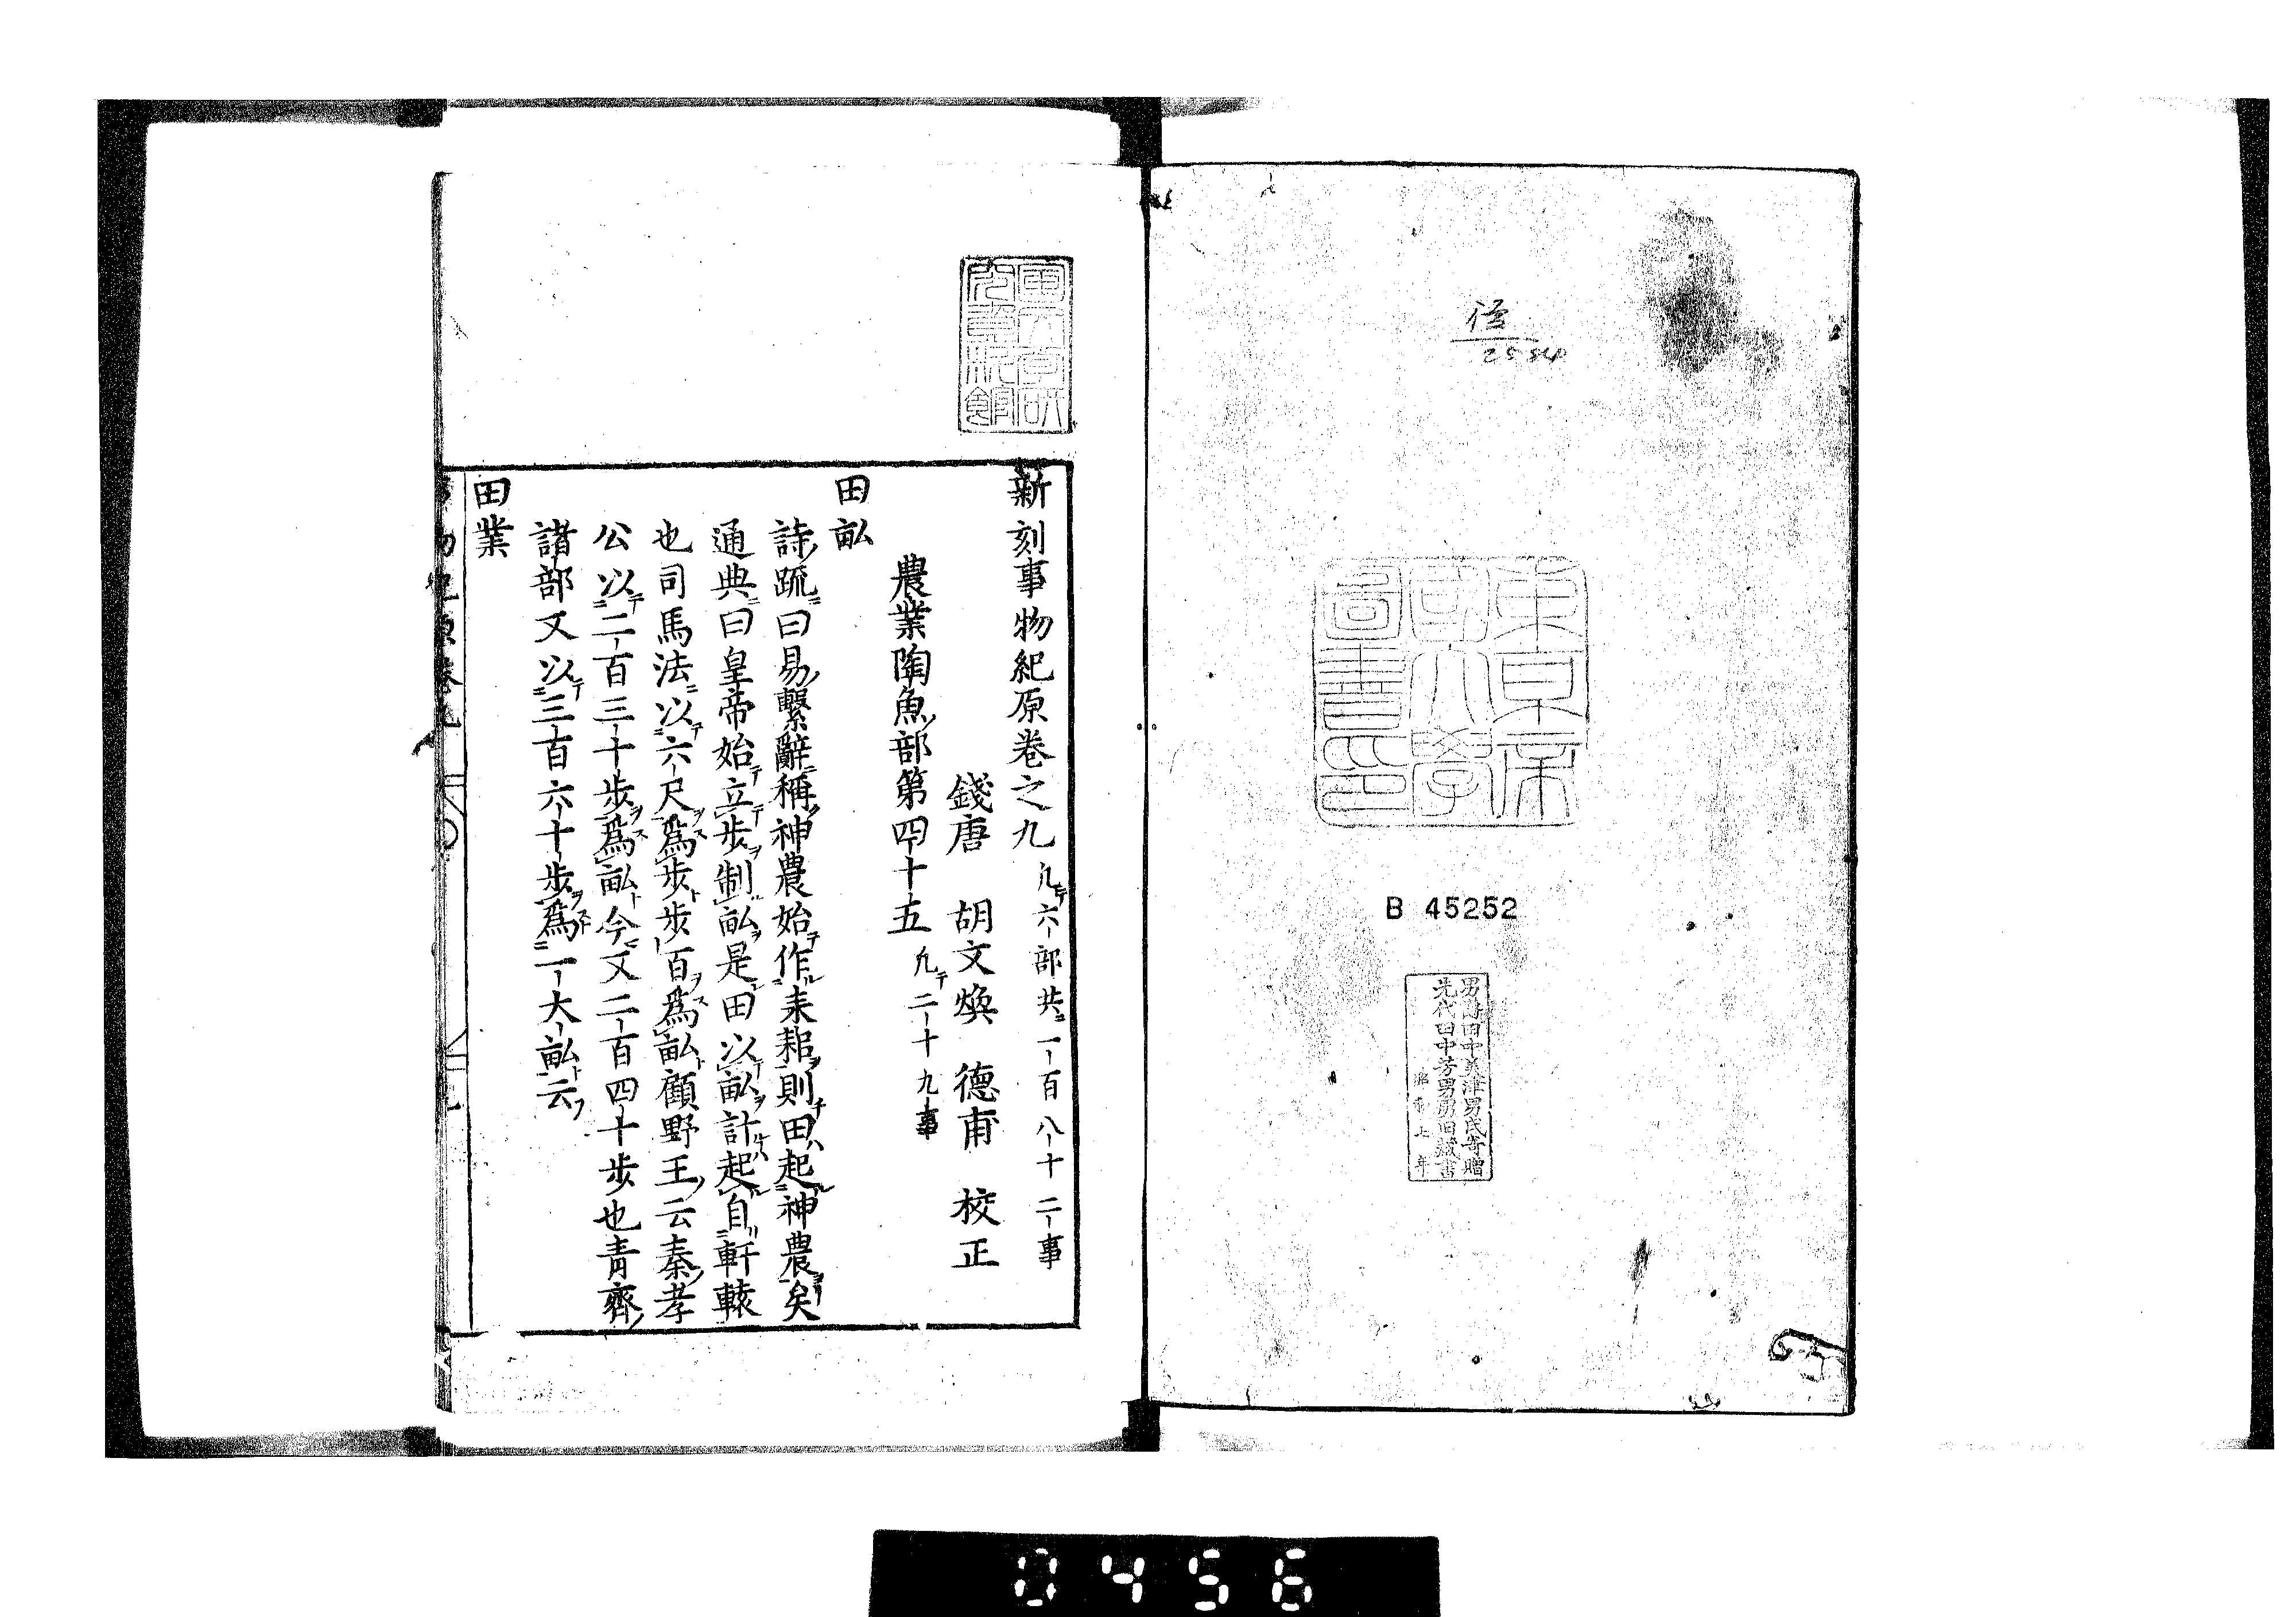 侄
2554
東京帝
國大學
圖書印
B 45252
男爵田中美津男氏寄贈
先代田中芳男男旧蔵書
昭和七年
新刻事物紀原卷之九 凡六部共一百八十二事
錢唐 胡文煥 德甫 校正
農業陶魚部第四十五 凡二十九事
田畝
詩疏曰易繫辭稱神農始作耒耜則田起神農矣
通典曰皇帝始立步制畝是田以畝計起自軒轅
也司馬法以六尺爲步步百爲畝顧野王云秦孝
公以二百三十步爲畝今又二百四十步也青齊
諸部又以三百六十步爲一大畝云
田業
0456